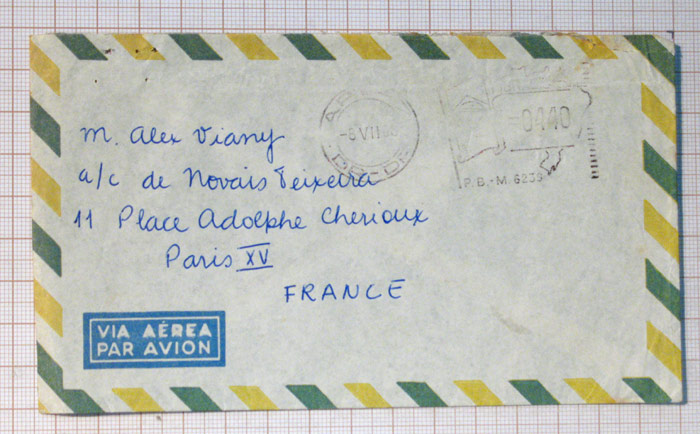 -6 VII
0440
P.B.-M. 6235
M. Alex Viany
a/c de Novais Teixeira
11 Place Adolphe Cherioux
Paris XV
FRANCE
VIA AÉREA
PAR AVION